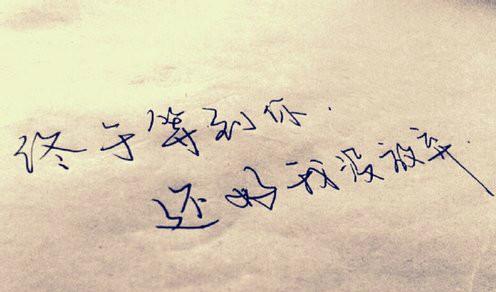 终于等到你.
还好我没放弃.